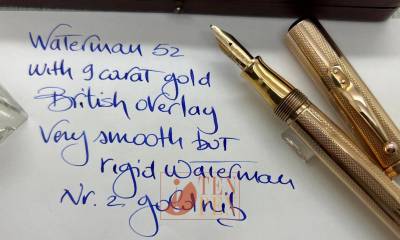 Waterman 52
with 9 carat gold
British overlay
Very smooth but
rigid Waterman
Nr. 2 gold nib
TEX
PEN